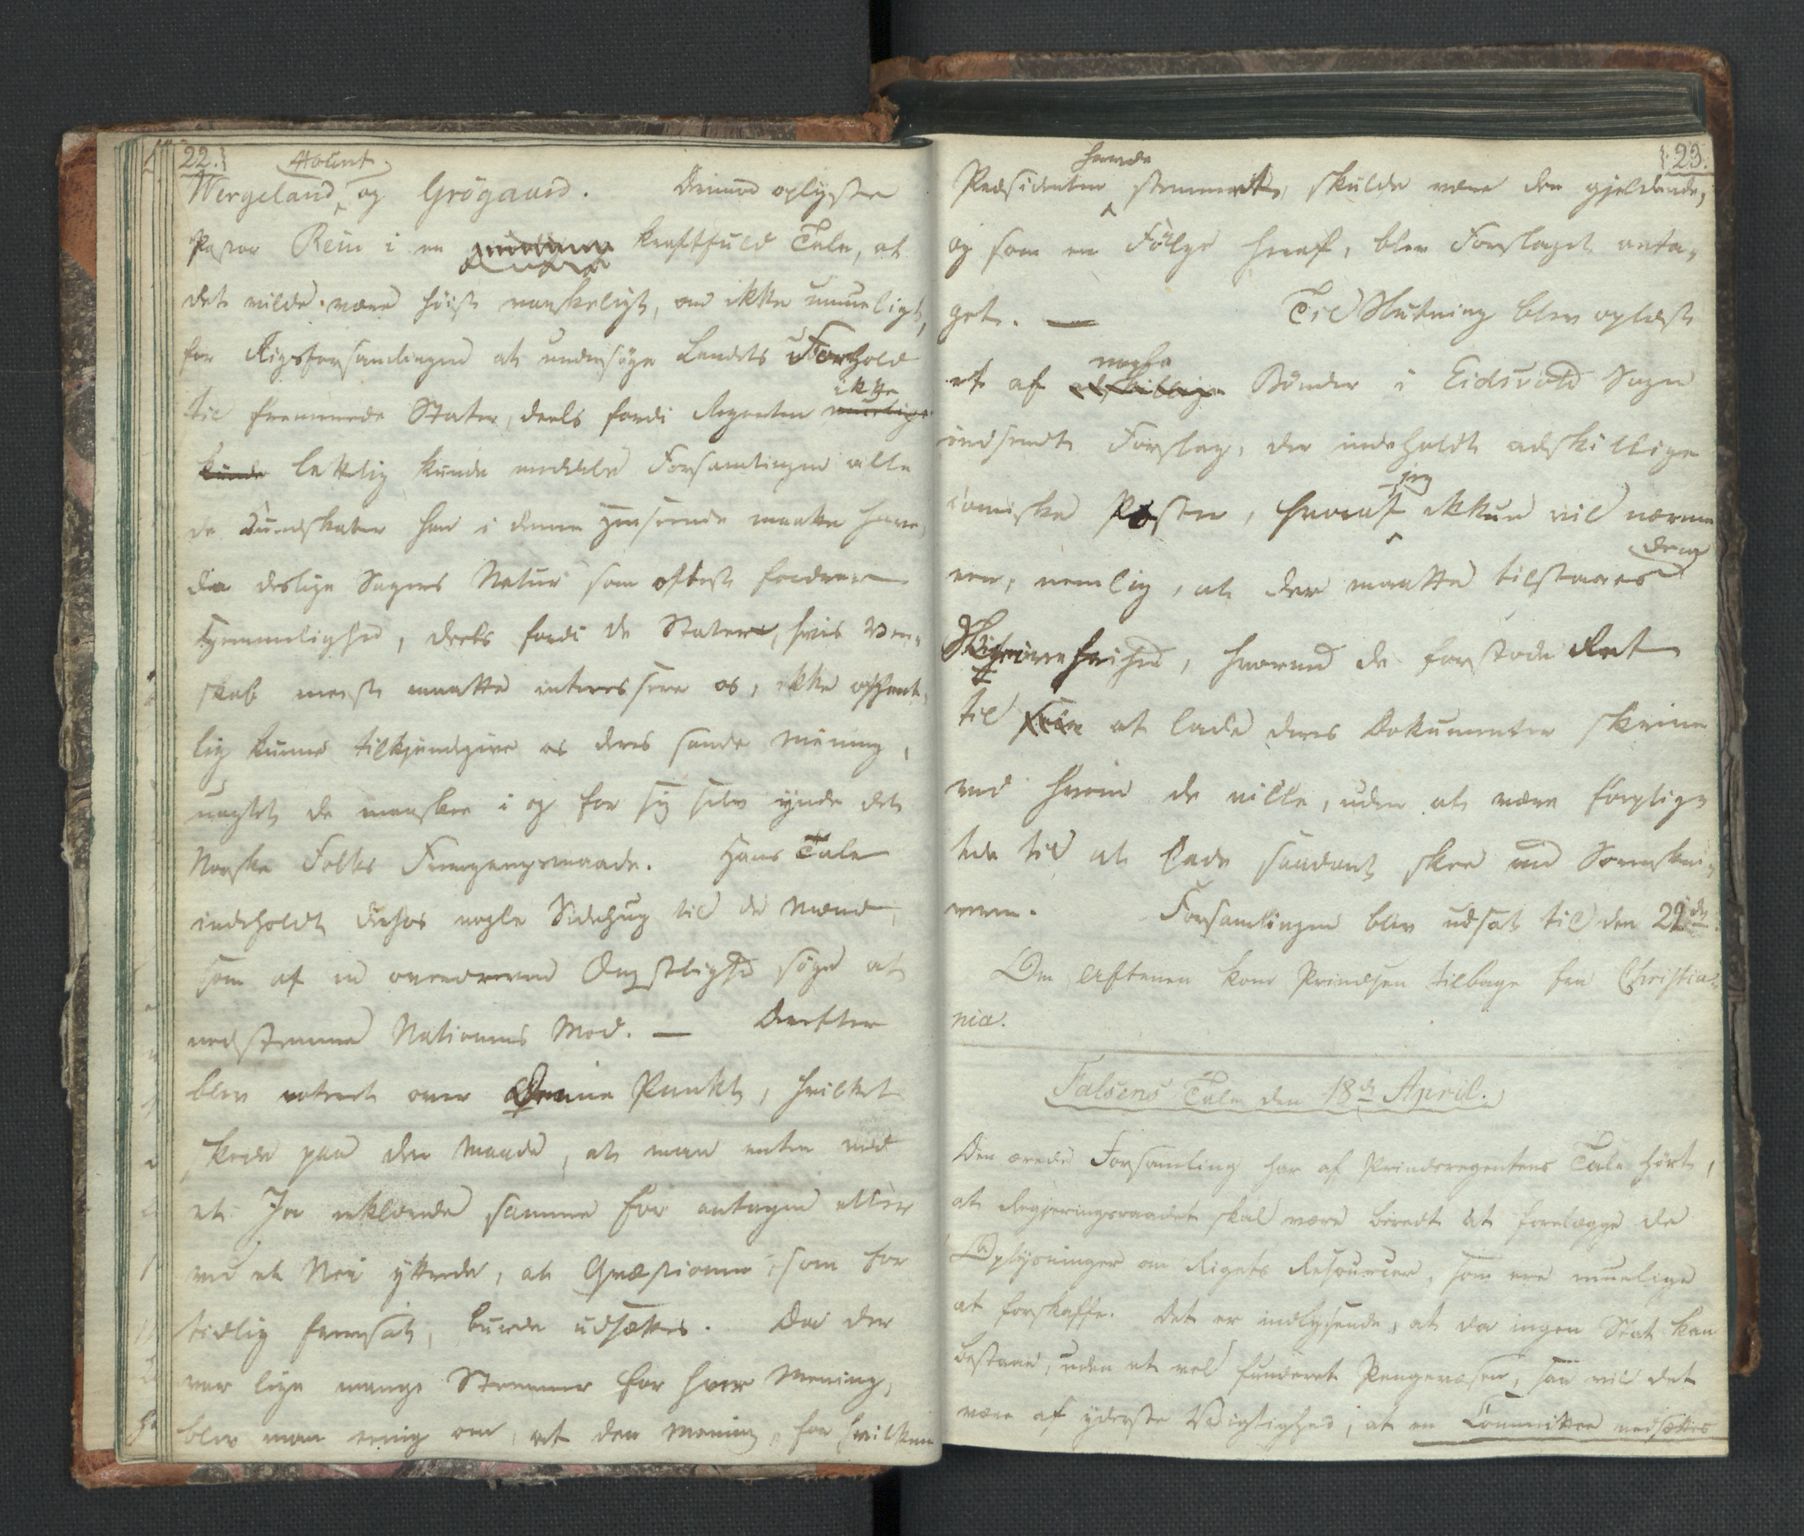 22.
Mount
Wergeland, og Grögaard. Derimod oplyste
Pastor Rein i en kraftfuld Tale, at
det vilde være høist vanskeligt, om ikke umueligt,
for Rigsforsamlingen at undersøge Landets Forhold
ikke
til fremmede Stater, deels fordi Regenten muelig
kunde lettelig kunde meddele Forsamlingen alle
de Kundskaber han i denne Henseende maatte have,
da deslige Sagers Natur som oftest fordrer
Hemmelighed, deels fordi de Stater, hvis Ven-
skab meest maatte interessere os, ikke offent-
lig kunne tilkjendegive os deres sande Mening,
uagtet de maaskee i og for sig selv ynde det
Norske Folks Fremgangsmaade. Hans Tale
indeholdt derhos nogle Sidehug til de Mænd,
som af en overdreven Ængstlighed søge at
nedstemme Nationens Mod. — Derefter
blev voteret over denne Punkt, hvilket
skede paa den Maade, at man enten med
et Ja erklærede samme for antagen eller
med et Nei yttrede, at Qvæstionen, som for
tidlig fremsat, burde udsættes. Da der
var lige mange Stemmer for hver Mening,
blev man enig om, at den Mening, for hvilken
23.
havde
Præsidenten stemmet, skulde være den gjeldende,
og som en Følge heraf, blev Forslaget anta-
get. — Til Slutning blev oplæst
nogle
et af adskillige Bønder i Eidsvold Sogn
indsendt Forslag, der indeholdt adskillige
jeg
comiske Poster, hvoraf ikkun vil nævne
dem
een, nemlig, at der maatte tilstaaes
Skrivefrihed, hvorved de forstode Ret
til at lade deres Dokumenter skrive
ved hvem de ville, uden at være forpligte-
de til at lade saadant skee ved Sorenskri-
veren. Forsamlingen blev udsat til den 21de.
Om Aftenen kom Prindsen tilbage fra Christia-
nia.
Falsens Tale den 18de April.
Den ærede Forsamling har af Prindsregentens Tale hørt,
at Regjeringsraadet skal være beredt at forelægge de
Oplysninger om Rigets Resourcer, som ere muelige
at forskaffe. Det er indlysende, at da ingen Stat kan
bestaae, uden et vel funderet Pengevæsen, saa vil det
være af yderste Vigtighed, at en Committee nedsættes